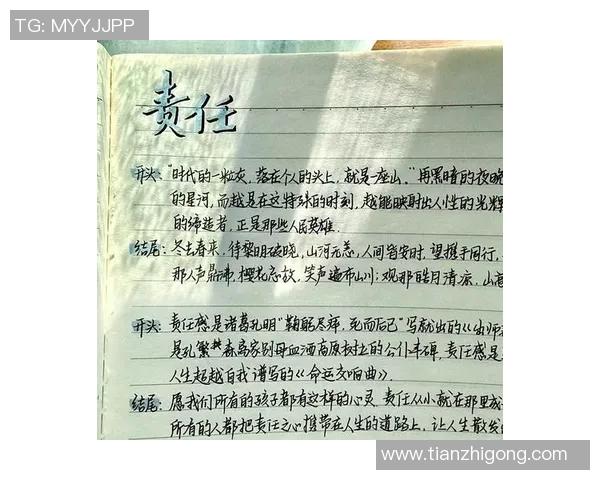 TG: MYYJJPP
责任
开头："时代的一粒灰,落在个人的头上,就是一座山。"再黑暗的夜晚
的星河,而越是在这特殊的时刻,越能映射出人性的光辉
的缔造者,正是那些人民英雄.
结尾:冬去春来,待黎明破晓,山河无恙,人间皆安时,望携手同行,
那人声鼎沸,樱花恣放,笑声遍布山川;观那皓月清凉,山
开头:责任感是诸葛孔明"鞠躬尽瘁,死而后已"写就出的《出师
是孔繁森离家别母血洒高原树立的公仆丰碑,责任感是
人生超越自我谱写的《命运交响曲》.
结尾:愿我们所有的孩子都有这样的心灵 责任从小就在那里
所有的人都把责任之心携带在人生的道路上,让人生散发
www.tianzhigong.com